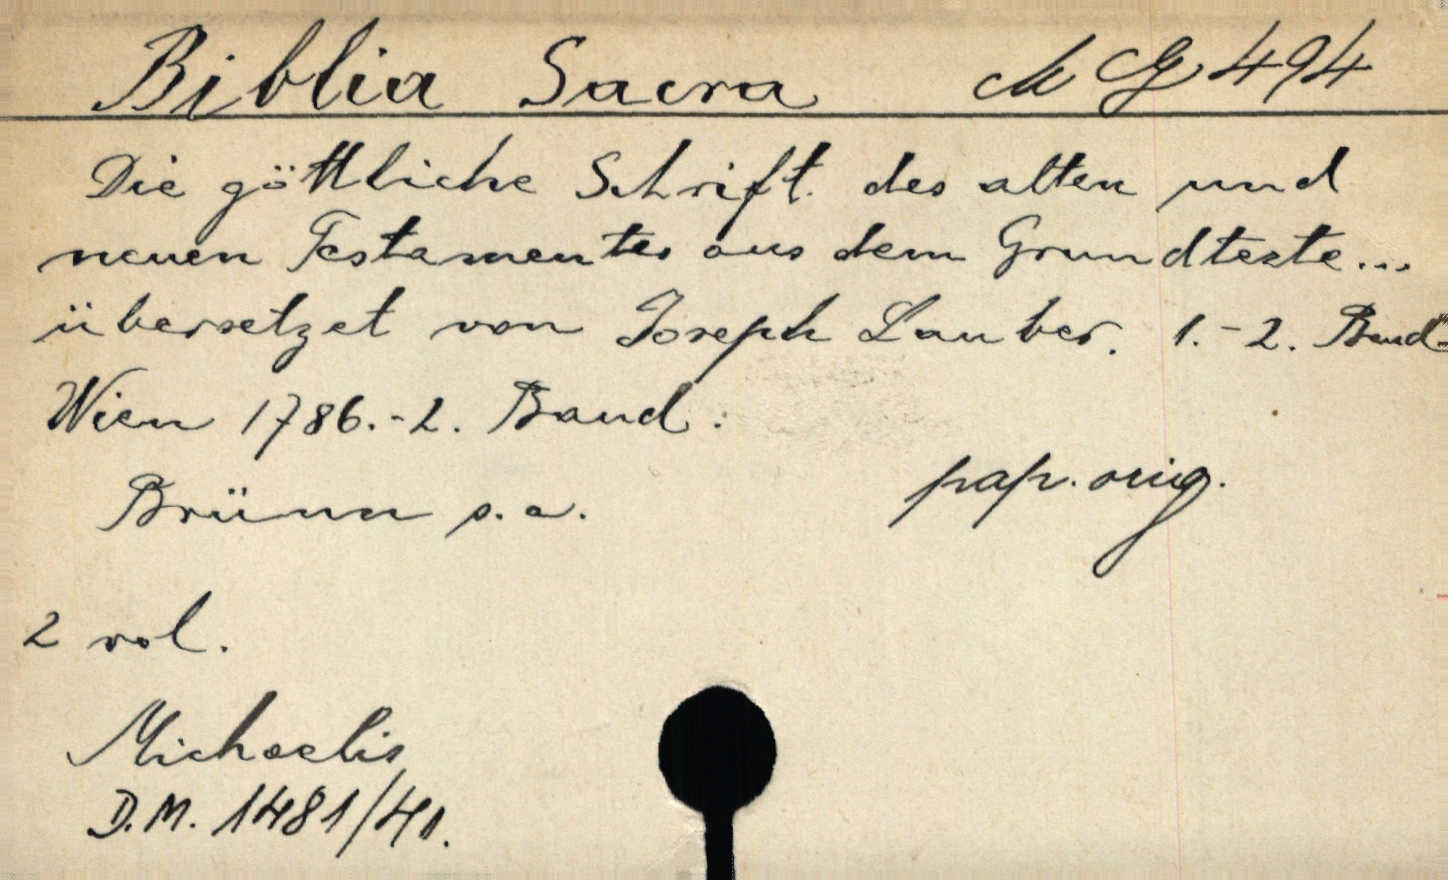 Biblia Sacra M G 494
Die göttliche Schrift des alten und
neuen Testamentes aus dem Grundtexte...
übersetzet von Joseph Lauber. 1.-2. Band
Wien 1786.-2. Band:
Brünn s.a. pap. orig.
2 vol.
Michaelis
D.M. 1481/41.